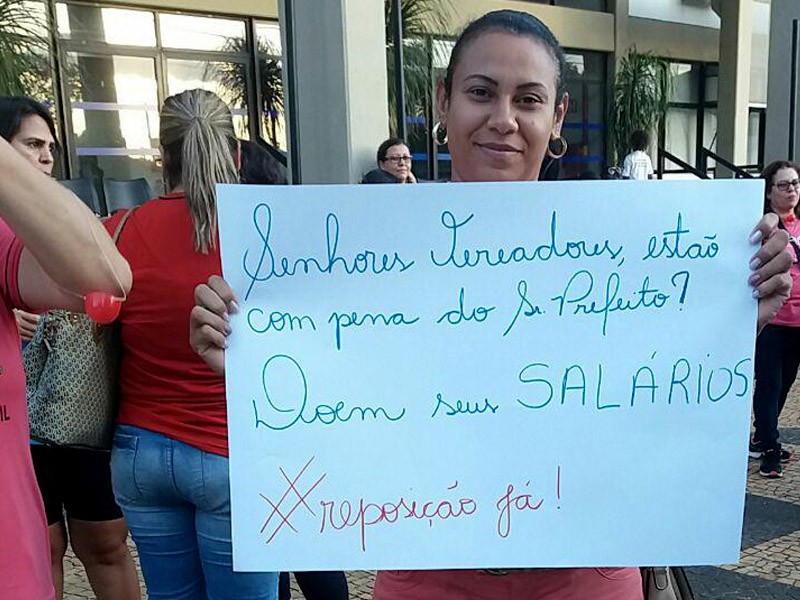 Senhores Vereadores, estão
com pena do Sr. Prefeito?
Doem seus SALÁRIOS
#reposição já!
IL